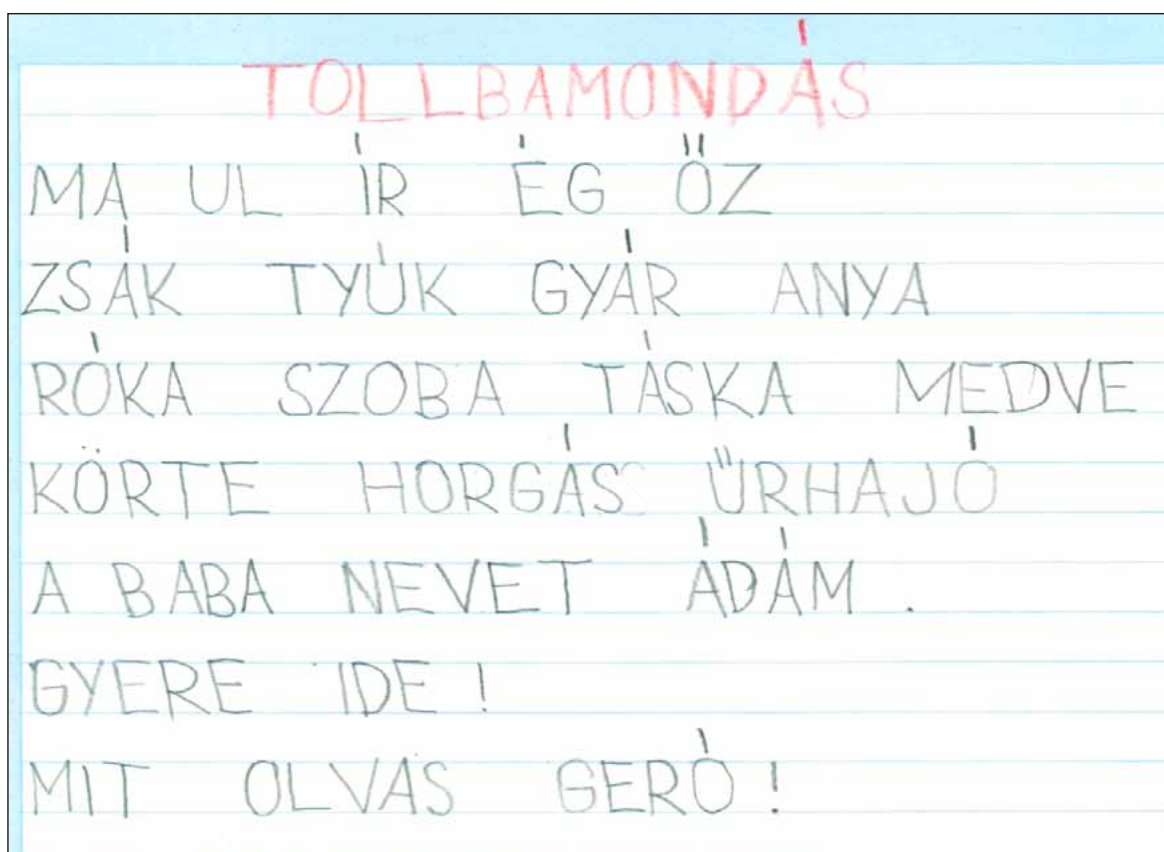 TOLLBAMONDÁS
MA UL ÍR ÉG ŐZ
ZSÁK TYÚK GYÁR ANYA
RÓKA SZOBA TÁSKA MEDVE
KÖRTE HORGÁS ŰRHAJÓ
A BABA NEVET ÁDÁM .
GYERE IDE !
MIT OLVAS GERÓ !